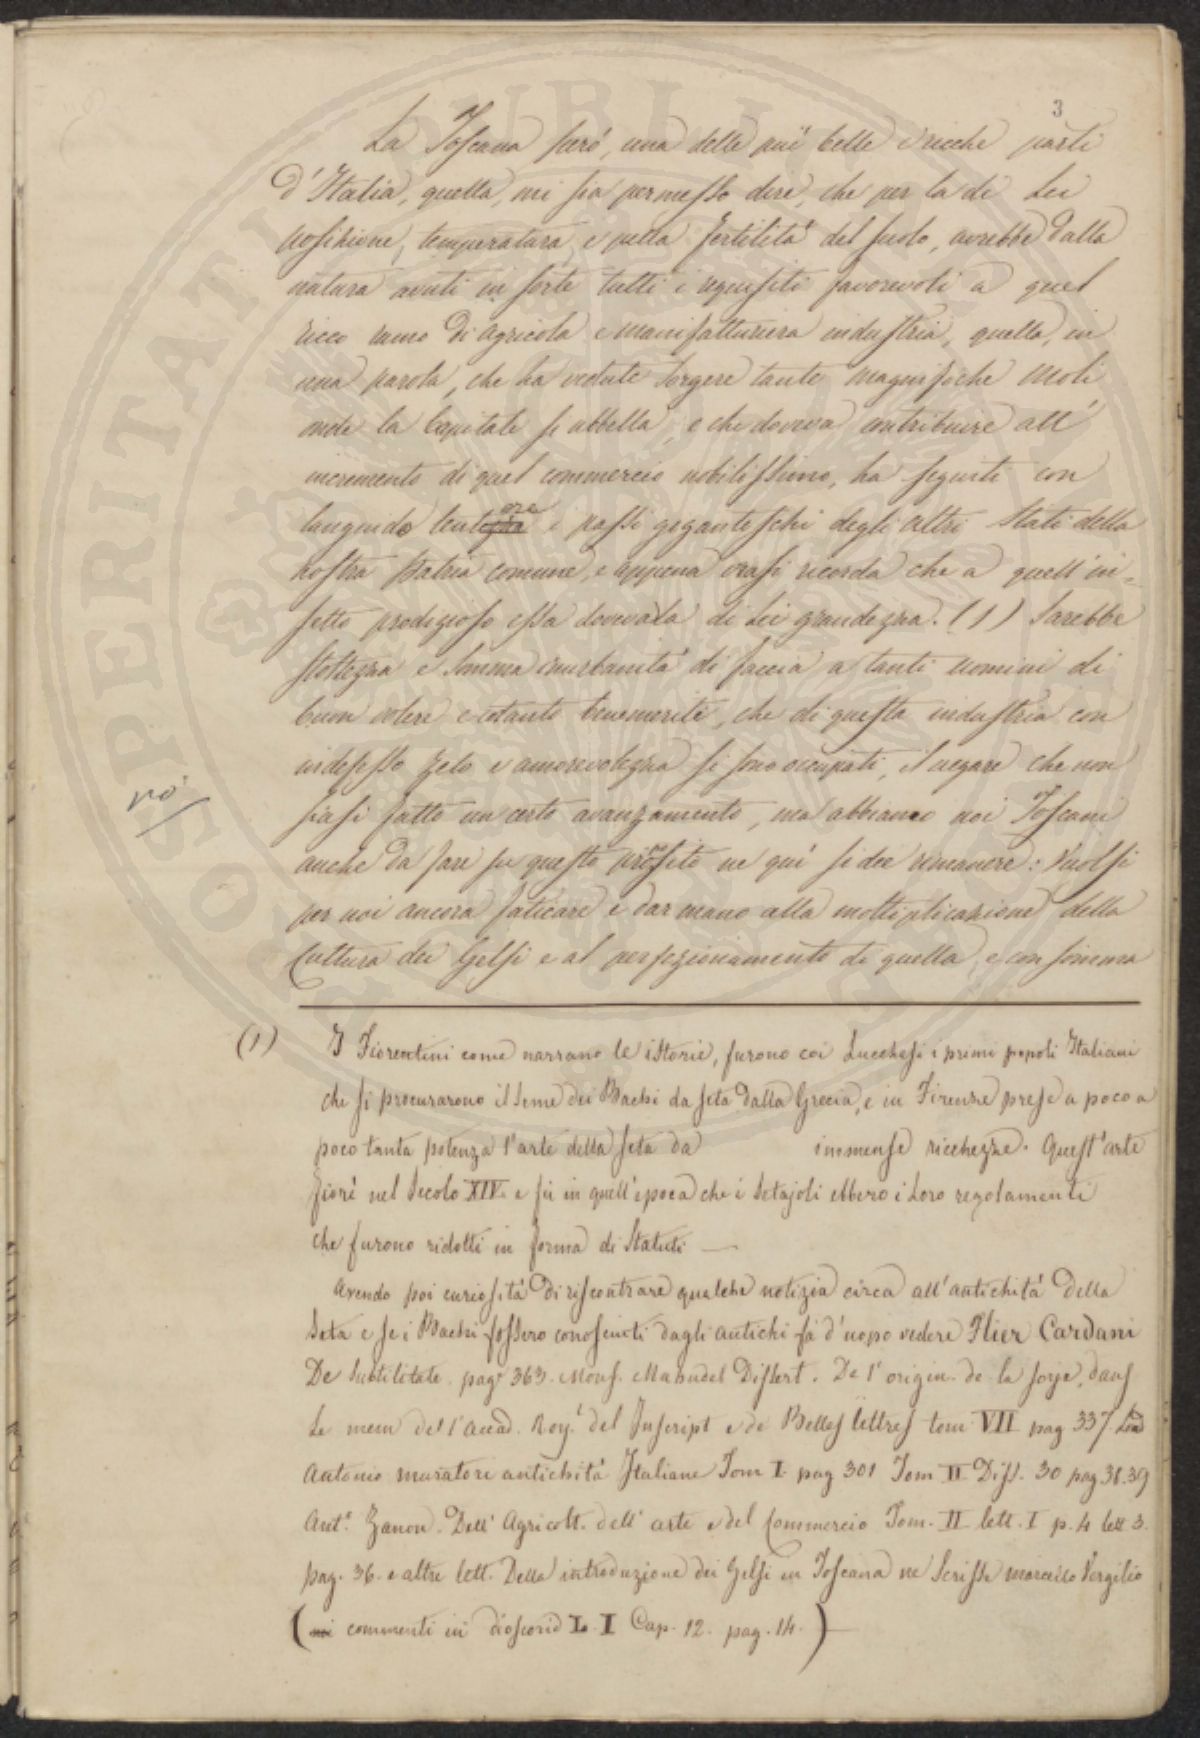 3
La Toscana però, una delle più belle e ricche parti
d'Italia, quella, mi sia permesso dire, che per la di Lei
posizione, temperatura, e pella fertilità del suolo, avrebbe dalla
natura avuti in sorte tutti i requisiti favorevoli a quel
ricco ramo di agricola e manifatturiera industria, quella, in
una parola, che ha vedute sorgere tante magnifiche moli
onde la Capitale si abbella, e che doveva contribuire all'
incremento di quel commercio nobilissimo, ha seguiti con
languido tentore i passi giganteschi degli altri Stati della
nostra Patria comune, e appena orasi ricorda che a quell'in=
setto prodigioso essa doveva la di Lei grandezza. (1) Sarebbe
stoltezza e somma inurbanità di faccia a tanti uomini di
buon volere e cotanto benemeriti, che di questa industria con
indefesso zelo e amorevolezza si sono occupati, il negare che non
siasi fatto un certo avanzamento, ma abbiamo noi Toscani
anche da fare su questo proposito ne quì si dee rimanere: Vuolsi
per noi ancora faticare e dar mano alla moltiplicazione della
Cultura dei Gelsi e al perfezionamento di quella, e con somma
po
(1) I Fiorentini come narrano le istorie, furono coi Lucchesi i primi popoli Italiani
che si procurarono il seme dei Bachi da seta dalla Grecia, e in Firenze prese a poco a
poco tanta potenza l'arte della seta da immense ricchezze. Quest'arte
fiorì nel Secolo XIV. e fù in quell'epoca che i Setajoli ebbero i Loro regolamenti
che furono ridotti in forma di Statuti —
Avendo poi curiosità di riscontrare qualche notizia circa all'antichità della
Seta e se i Bachi fossero conosciuti dagli antichi fà d'uopo vedere Hier Cardani
De Subtilitate. pag. 363. Mons. Mahudel Dissert. De l'origin. de la soye, dans
Le mem de l'Accad. Roy. del Inscript e de Belles lettres tom VII pag 337. Lod
Antonio muratori antichità Italiane Tom I. pag 301 Tom II Diss. 30 pag 38.39
Ant. Zanon. Dell' Agricolt. dell' arte e del Commercio Tom. II lett. I p. 4 lett 3.
pag. 36. e altre lett. Della introduzione dei Gelsi in Toscana ne Scrisse marcello Vergilio
(nei commenti in dioscorid L. I Cap. 12. pag. 14.)